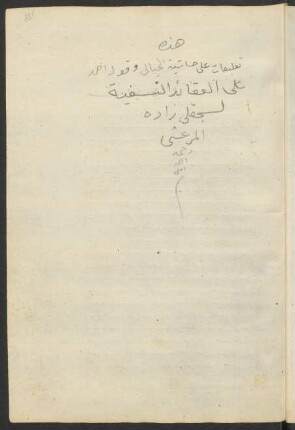 هذه
تعليقات على حاشية الخيالى وقول احمد
على العقائد النسفية
لسجقلى زاده
المرعشى
رحمه
الله